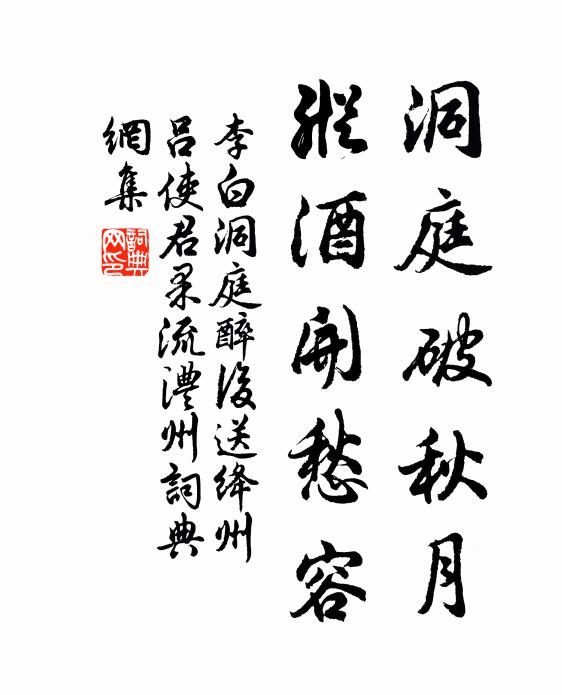 洞庭破秋月
縱酒開愁容
李白洞庭醉後送絳州
呂使君杲流澧州詞典
網集
詞典網印